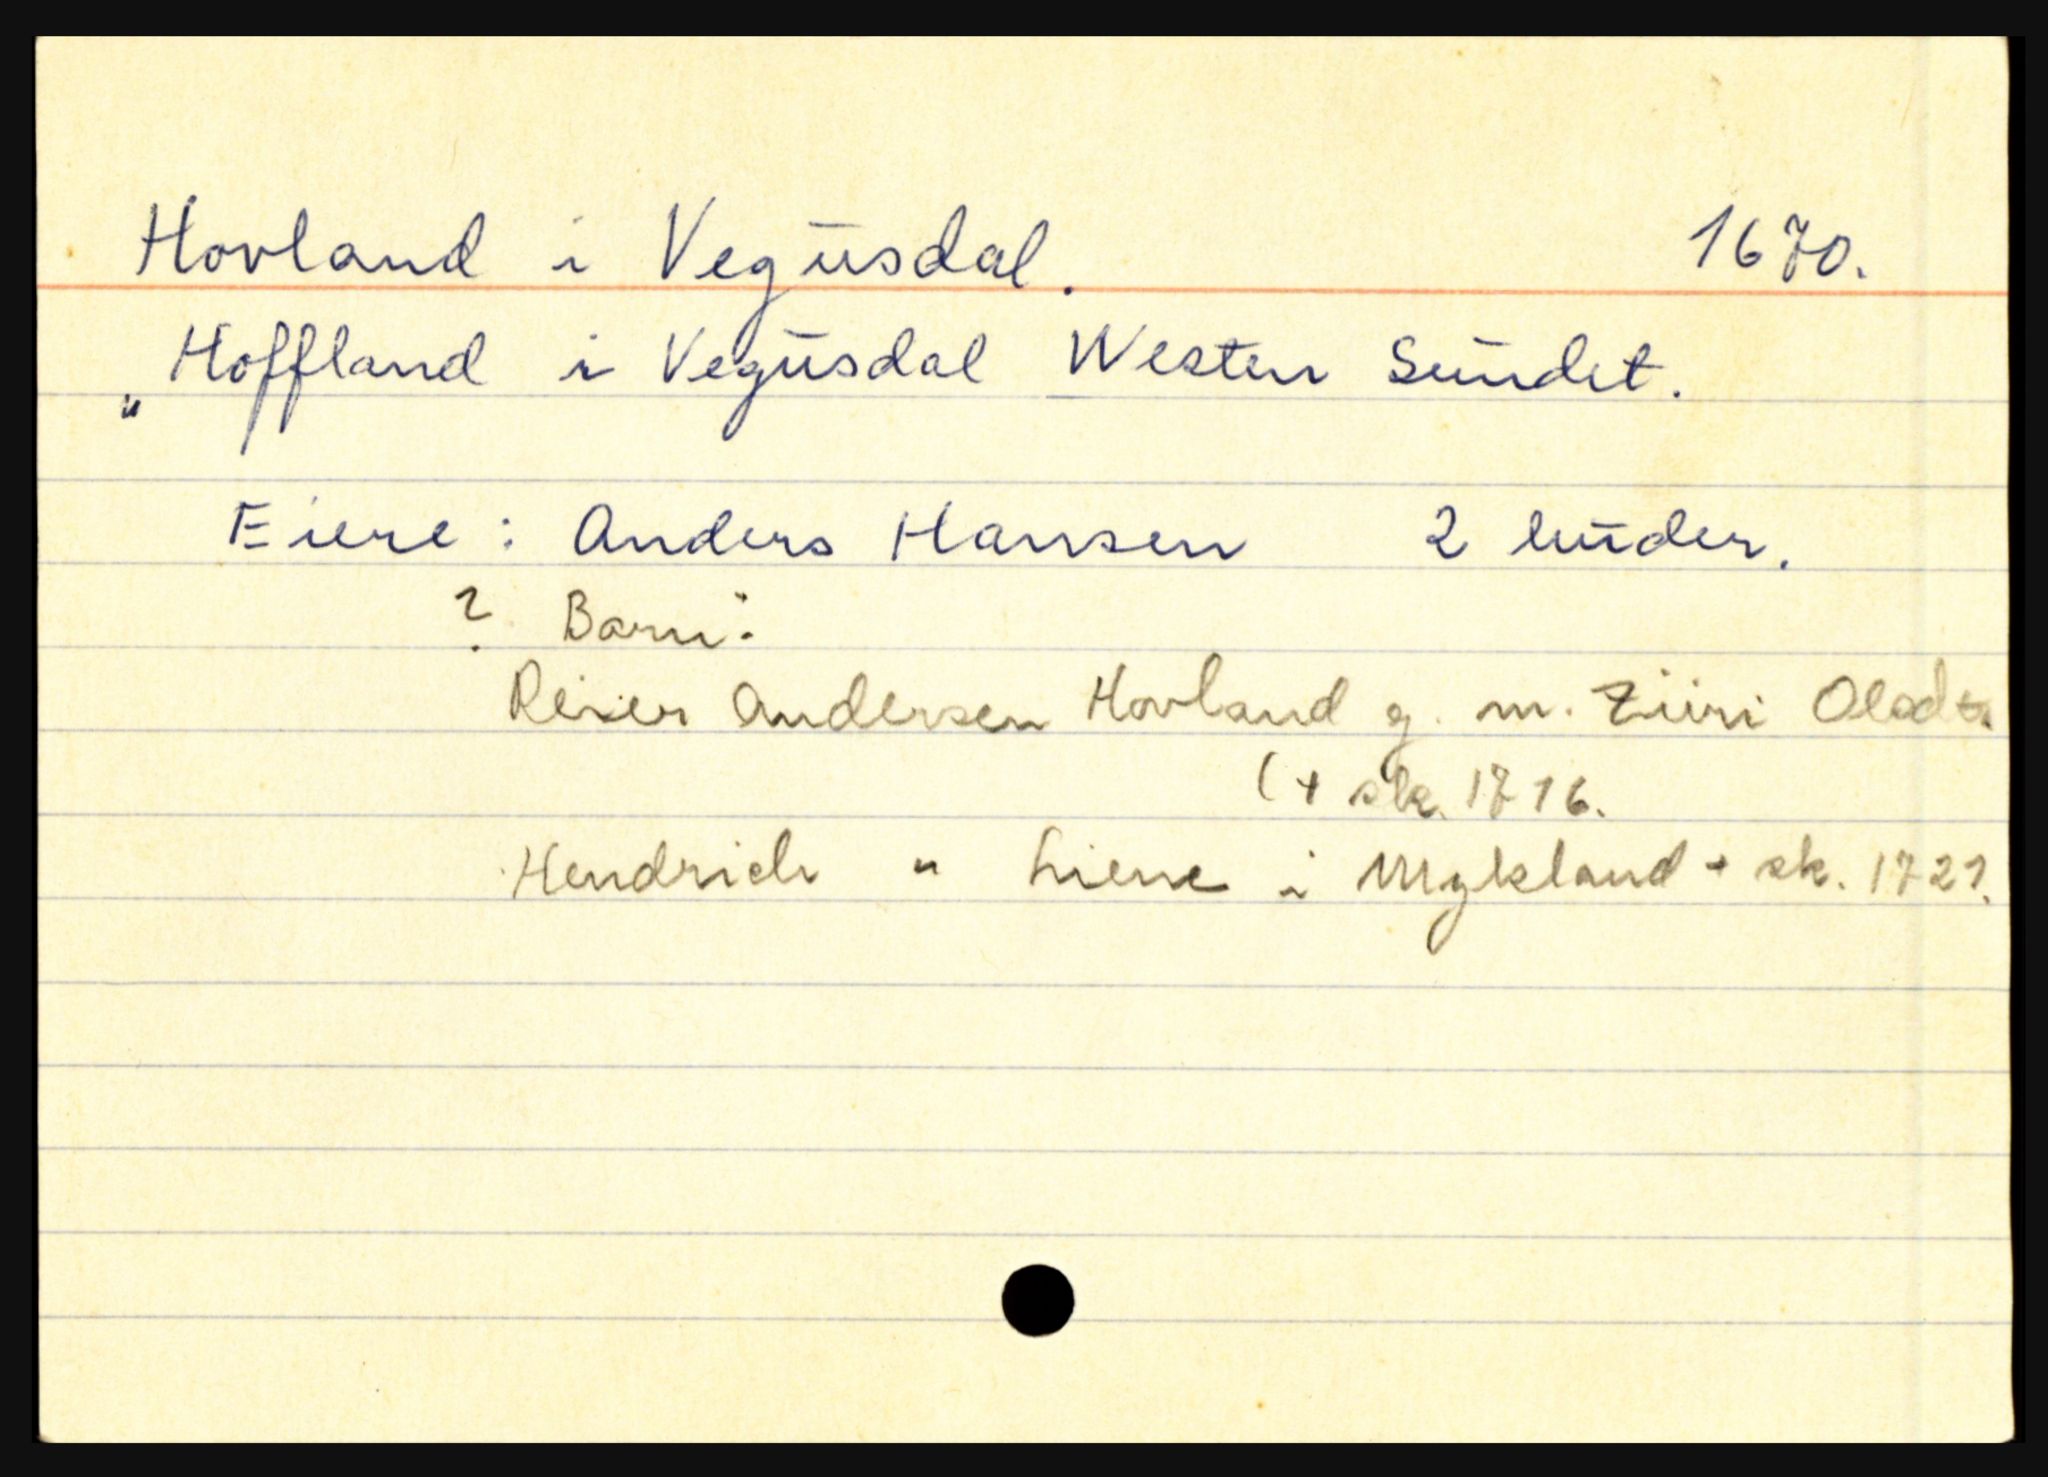 Hovland i Vegusdal. 1670.
„Hoffland i Vegusdal Westen Sundet.
Eiere: Anders Hansen 2 huder.
? Barn:
Reier Andersen Hovland g. m. Ziiri Olsdt.
(+ sk. 1716.
Hendrich " Liene i Mykland + sk. 1721.